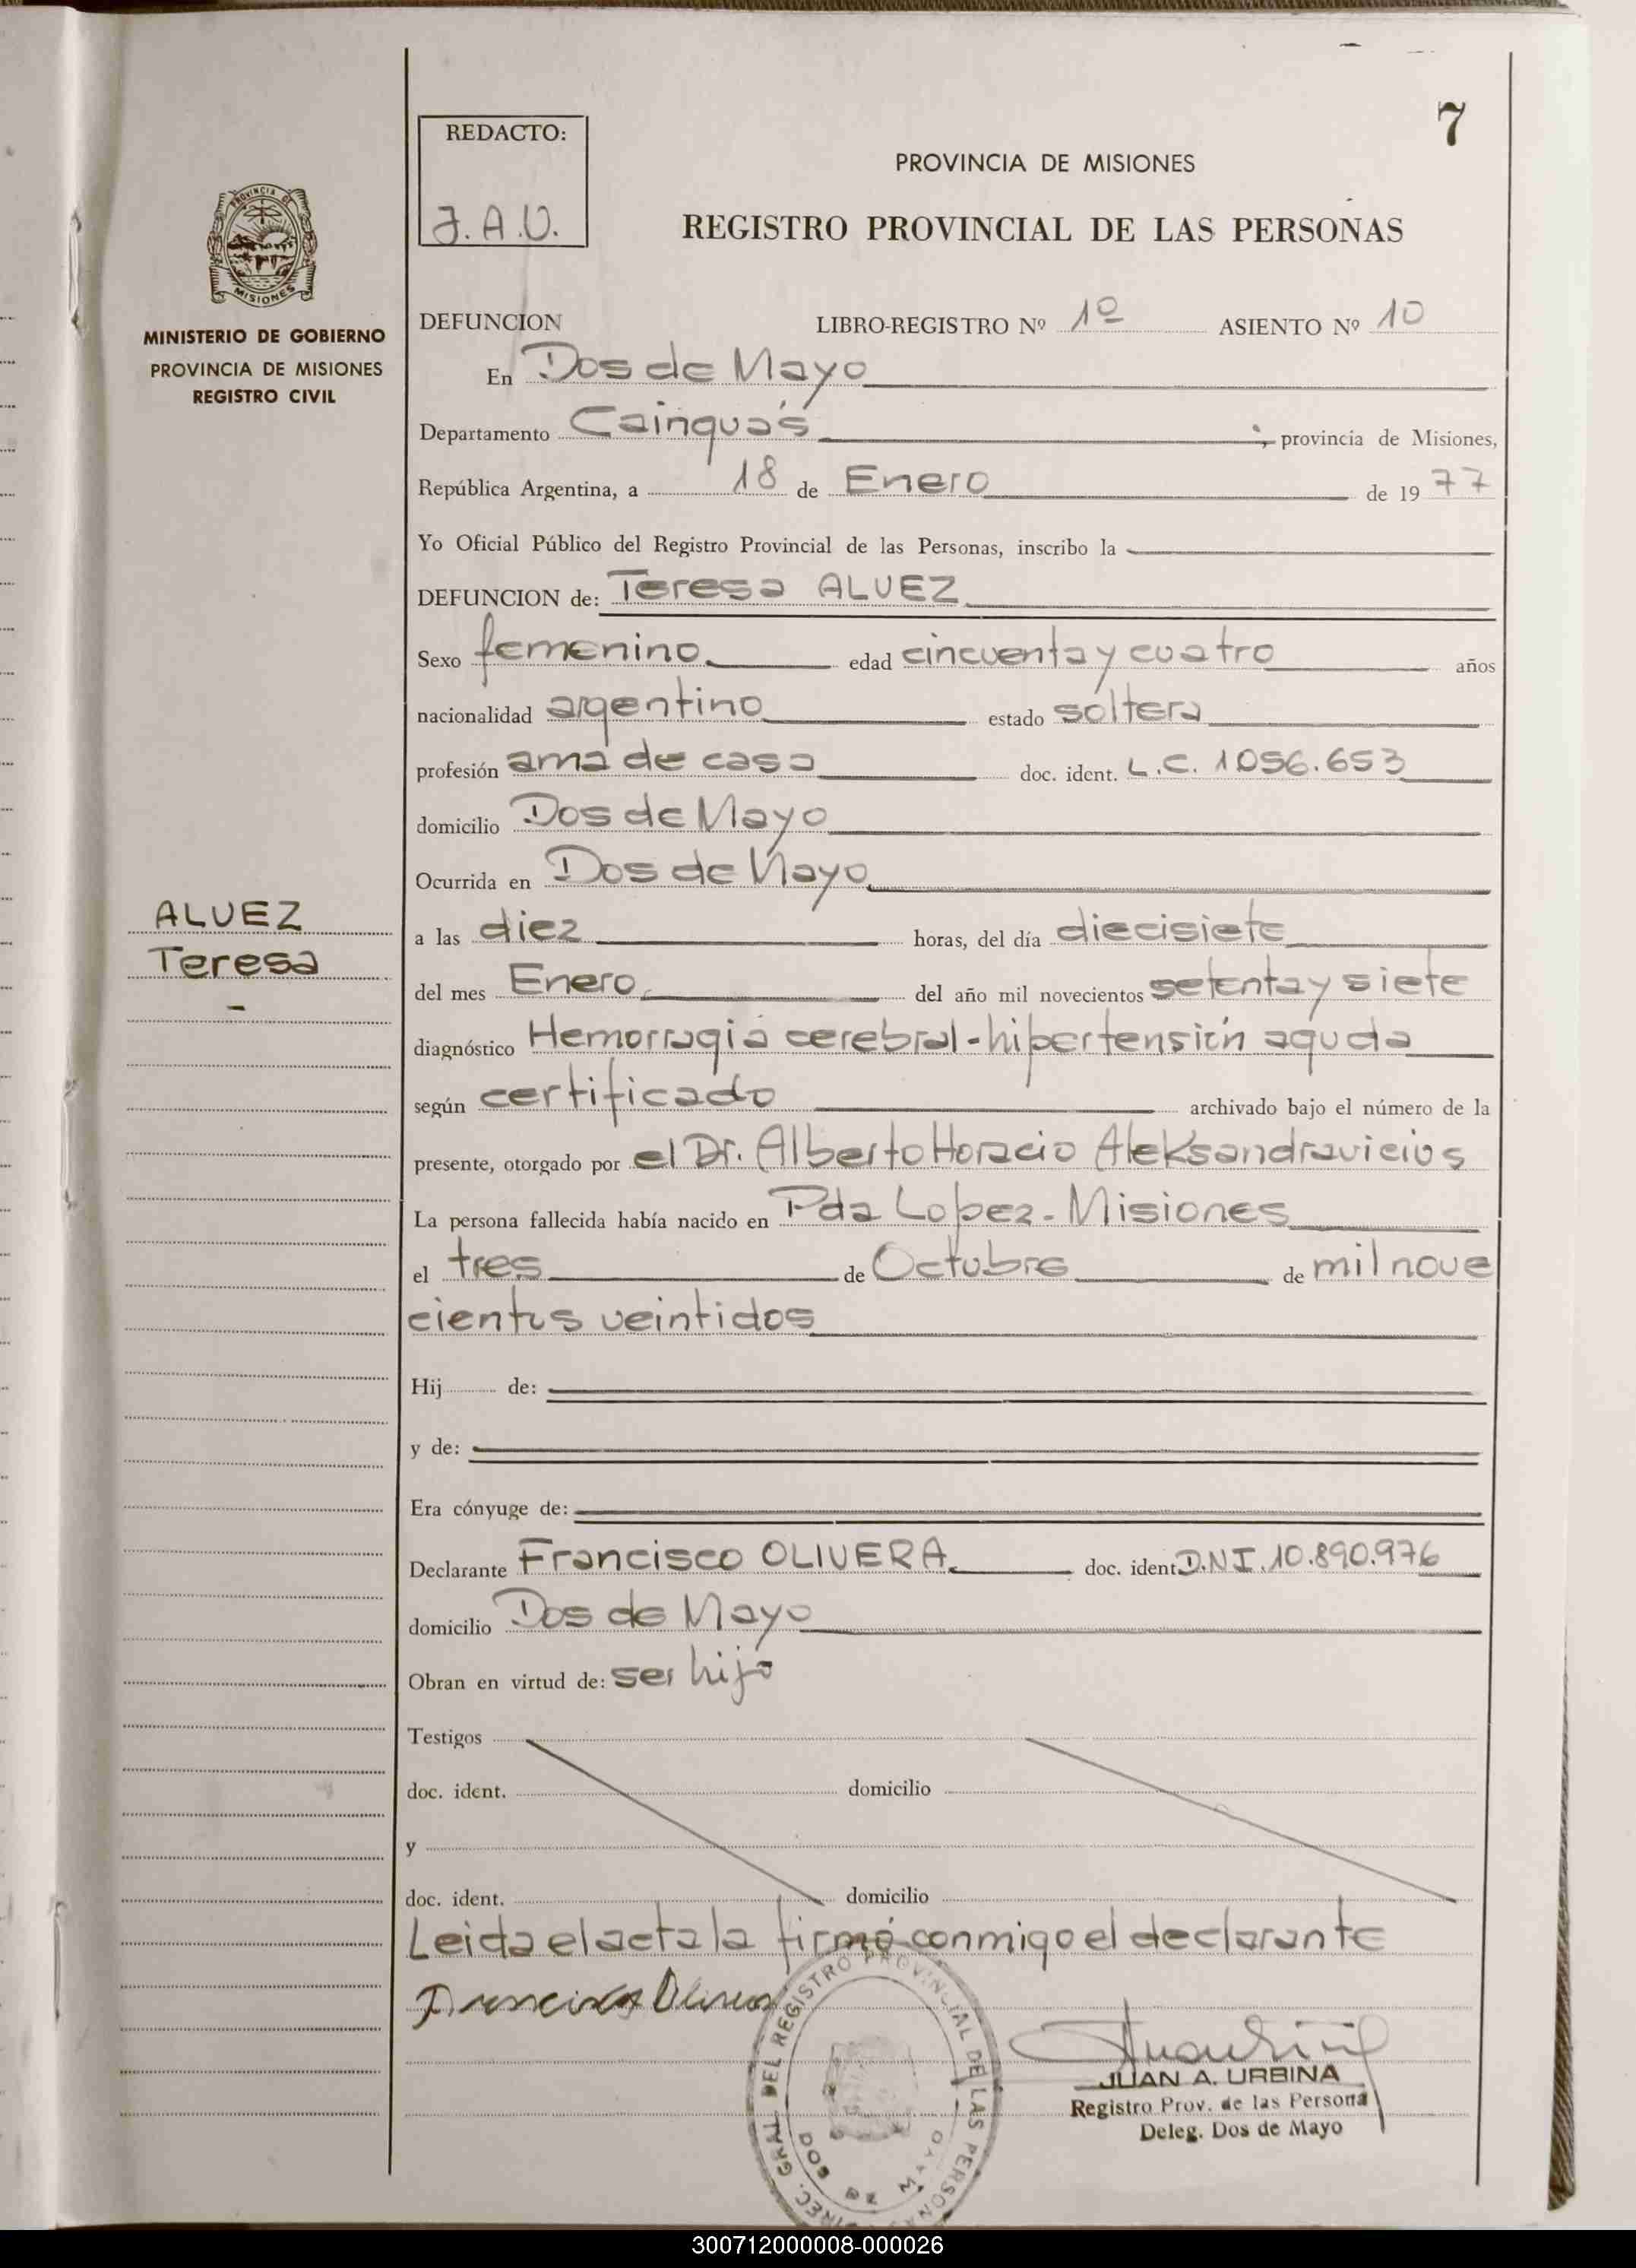 7
REDACTO:
J.A.U.
PROVINCIA DE MISIONES
REGISTRO PROVINCIAL DE LAS PERSONAS
PROVINCIA DE
MISIONES
MINISTERIO DE GOBIERNO
PROVINCIA DE MISIONES
REGISTRO CIVIL
DEFUNCION LIBRO-REGISTRO Nº 1º ASIENTO Nº 10
En Dos de Mayo
Departamento Cainguás, provincia de Misiones,
República Argentina, a 18 de Enero de 1977
Yo Oficial Público del Registro Provincial de las Personas, inscribo la
DEFUNCION de: Teresa ALVEZ
Sexo femenino edad cincuenta y cuatro años
nacionalidad argentino estado soltera
profesión ama de casa doc. ident. L.C. 1.056.653
domicilio Dos de Mayo
Ocurrida en Dos de Mayo
ALVEZ
Teresa
-
a las diez horas, del día diecisiete
del mes Enero del año mil novecientos setenta y siete
diagnóstico Hemorragia cerebral - hipertensión aguda
según certificado archivado bajo el número de la
presente, otorgado por el Dr. Alberto Horacio Aleksandravicius
La persona fallecida había nacido en Pda Lopez - Misiones
el tres de Octubre de mil nove
cientos veintidos
Hij de:
y de:
Era cónyuge de:
Declarante Francisco OLIVERA doc. ident. D.N.I. 10.890.976
domicilio Dos de Mayo
Obran en virtud de: ser hijo
Testigos
doc. ident. domicilio
y
doc. ident. domicilio
Leida el acta la firmó conmigo el declarante
Francisco Olivera
DIREC. GRAL DEL REGISTRO PROVINCIAL DE LAS PERSONAS
DOS DE MAYO
JUAN A. URBINA
Registro Prov. de las Persona
Deleg. Dos de Mayo
300712000008-000026